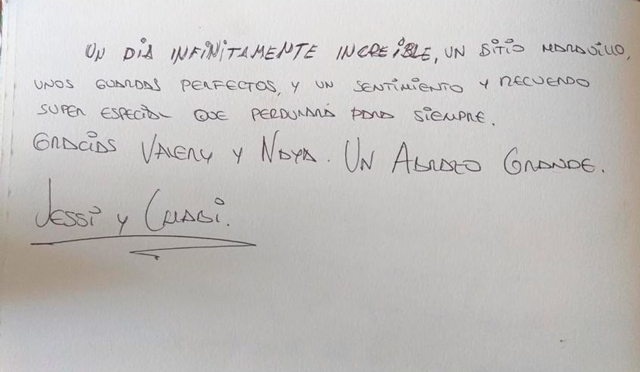 UN DIA INFINITAMENTE INCREIBLE, UN SITIO MARAVILLO,
UNOS GUARDAS PERFECTOS, Y UN SENTIMIENTO Y RECUERDO
SUPER ESPECIAL QUE PERDURARÁ PARA SIEMPRE.
GRACIAS VALERY Y NAYA. UN ABRAZO GRANDE.
JESSI Y